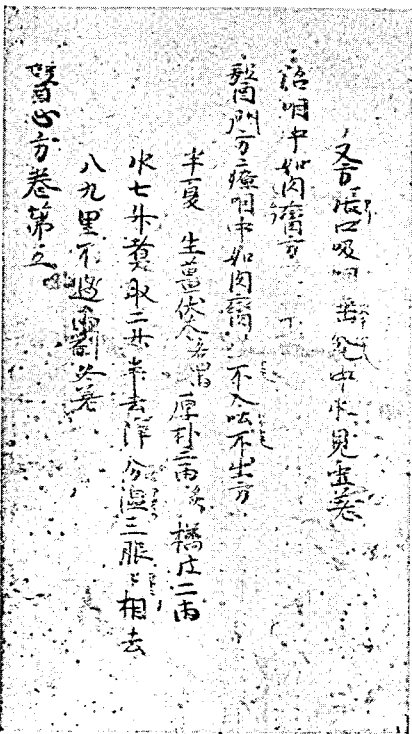 又方張口吸噏缶甕中水見立差
治咽中如肉臠方
醫門方療咽中如肉臠不入吐不出方
半夏 生薑 茯苓各四兩 厚朴三兩炙 橘皮二兩
水七升煑取二升半去滓分溫三服〻相去
八九里不過兩劑必差
醫心方卷第五